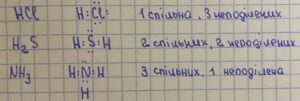 HCl H:Cl: 1 спільна, 3 неподілених
H₂S H:S:H 2 спільних, 2 неподілених
NH₃ H:N:H 3 спільних, 1 неподілена
H